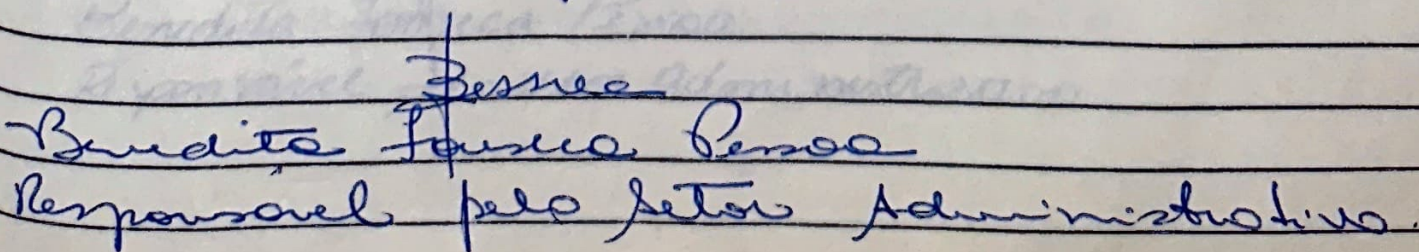 Benedita Fonseca Pessoa
Responsável pelo Setor Administrativo.